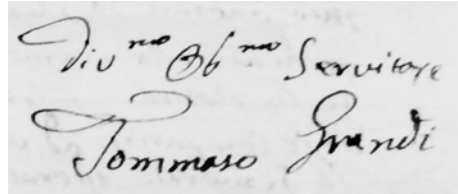 Div^mo Obb^mo Servitore
Tommaso Grandi